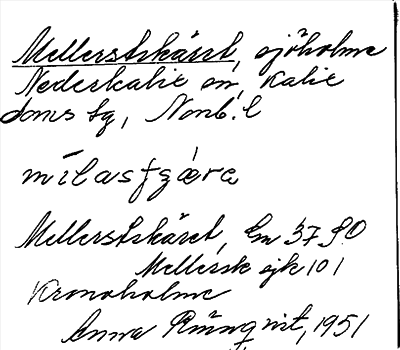 Mellerstskäret, sjöholme
Nederkalix sn, Kalix
doms sg, Nonb. l
mìlasfzǽra
Mellerstskäret, Gn 37 SO
Mellersk sjk 101
Kronoholme
Anna Rünqvist, 1951